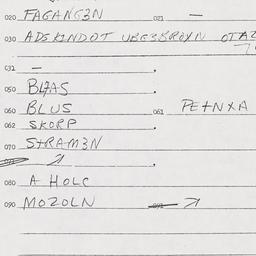 020 FAGANE3N 021 —
030 ADSKINDOT UBE3BROXN OTAZ
031 —
050 BLJAS
060 BLUS 061 PE±NXA
062 SKORP
070 S±RAM3N
080 A HOLC
090 MOZOLN